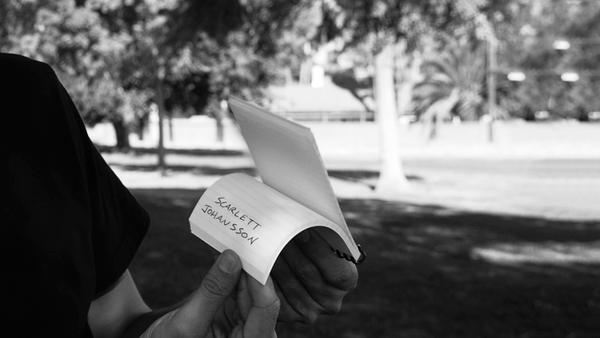 SCARLETT
JOHANSSON